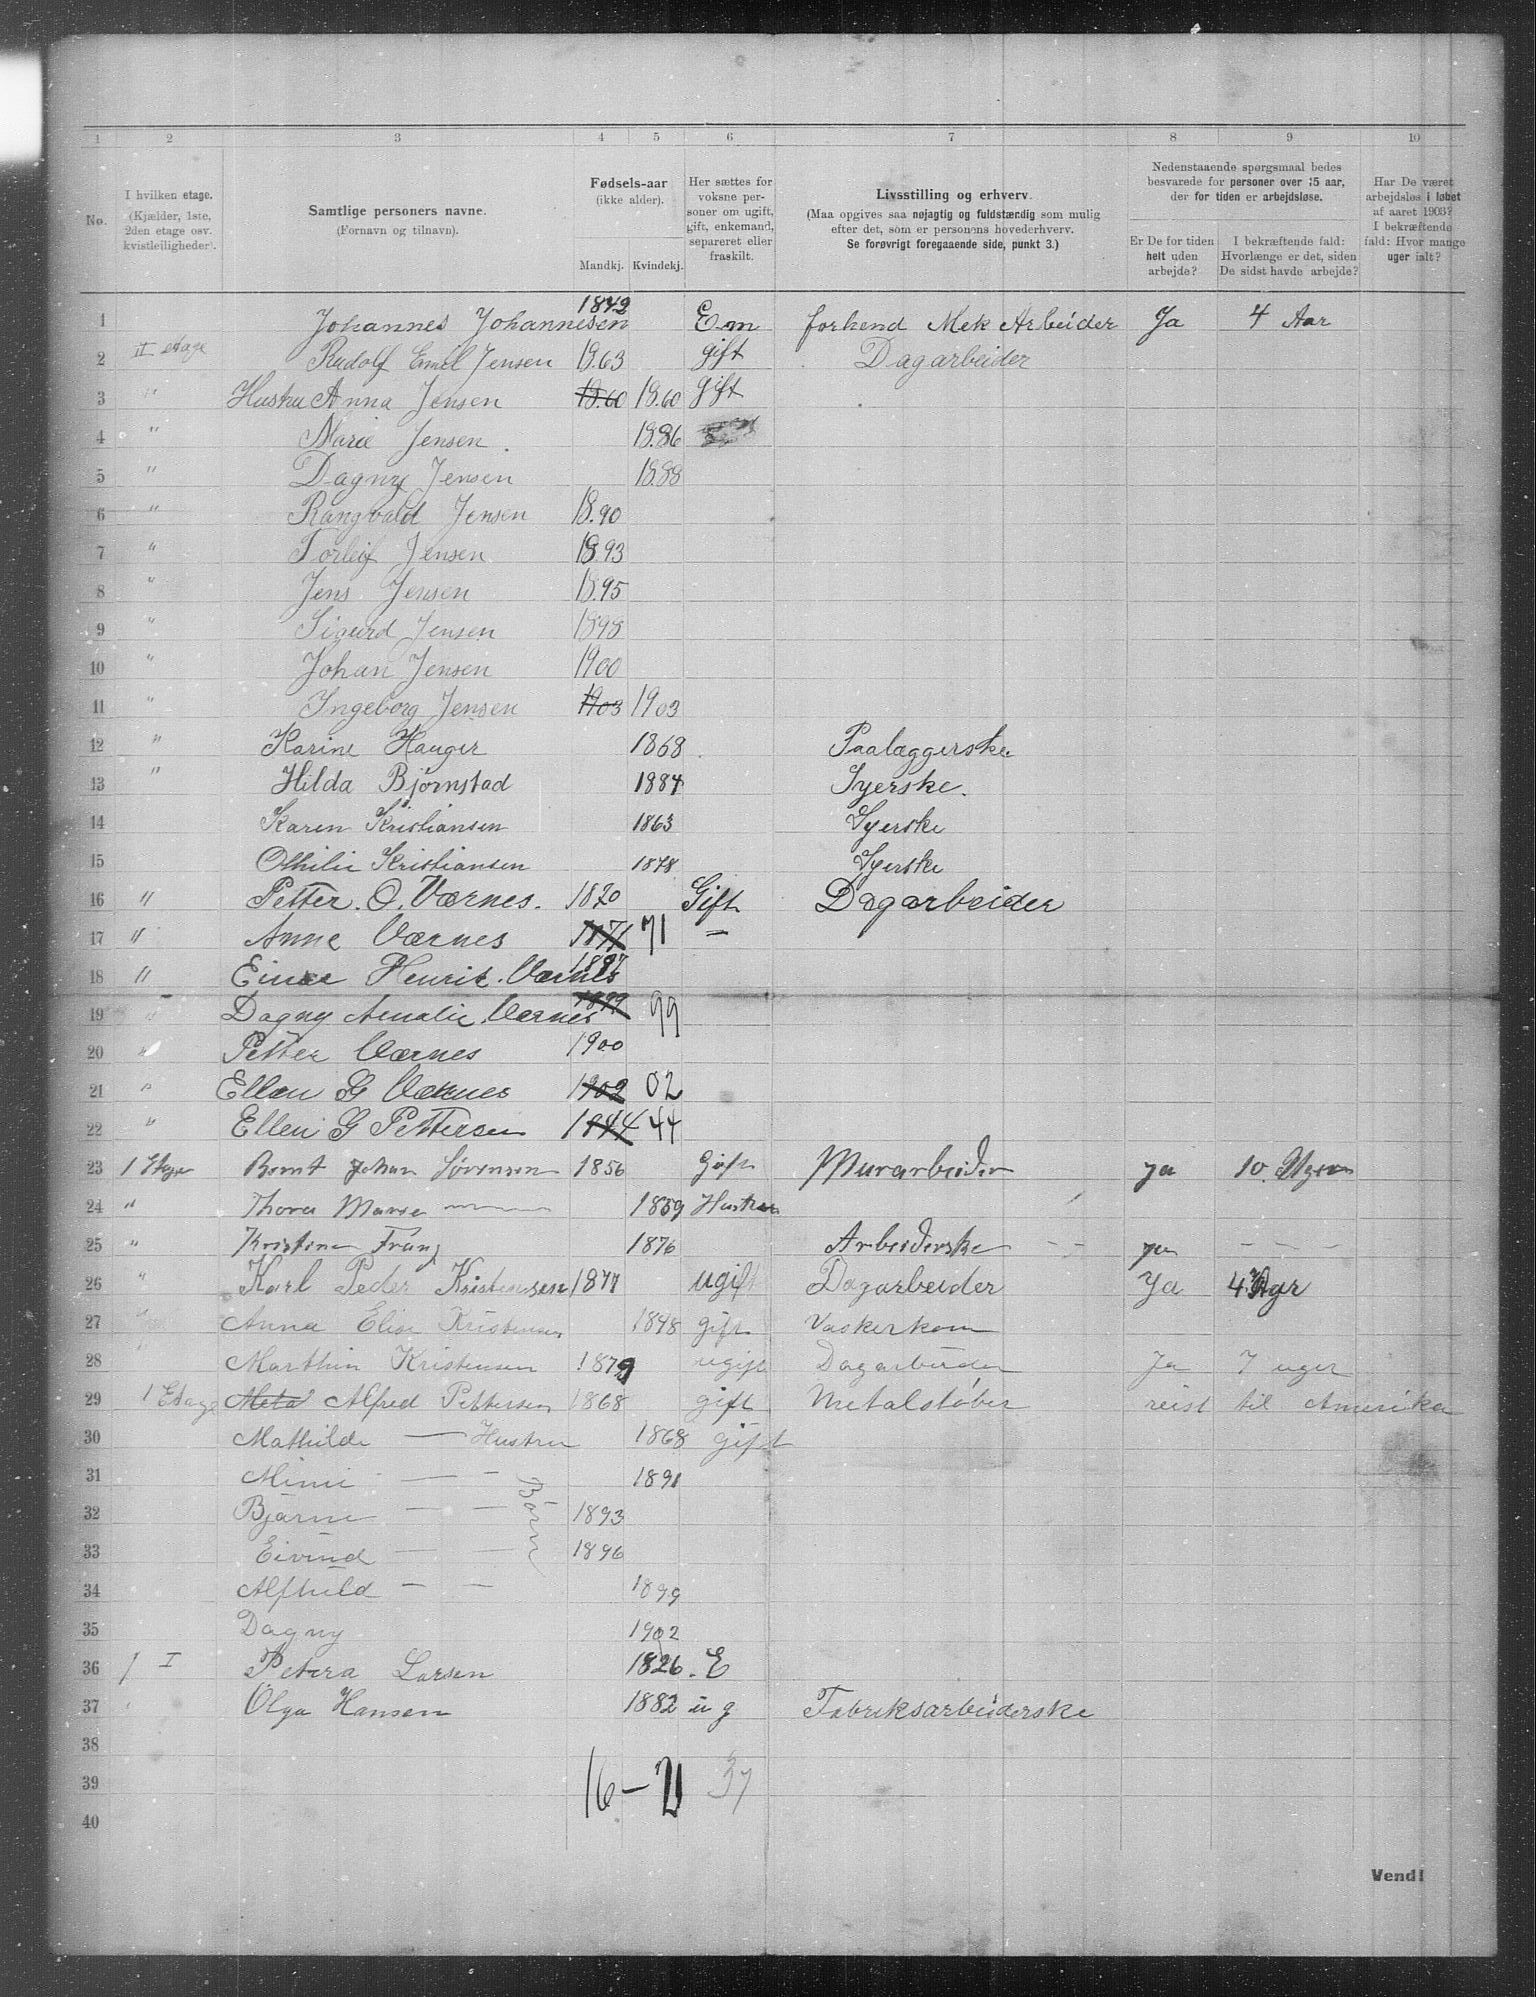 1 2 3 4 5 6 7 8 9 10
No.
I hvilken etage. (Kjælder, 1ste, 2den etage osv. kvistleiligheder).
Samtlige personers navne. (Fornavn og tilnavn).
Fødsels-aar (ikke alder). Mandkj. Kvindekj.
Her sættes for voksne personer om ugift, gift, enkemand, separeret eller fraskilt.
Livsstilling og erhverv. (Maa opgives saa nøjagtig og fuldstændig som mulig efter det, som er personens hovederhverv. Se forøvrigt foregaaende side, punkt 3.)
Nedenstaaende spørgsmaal bedes besvarede for personer over 15 aar, der for tiden er arbejdsløse.
Er De for tiden helt uden arbejde?
I bekræftende fald: Hvorlænge er det, siden De sidst havde arbejde?
Har De været arbejdsløs i løbet af aaret 1903? I bekræftende fald: Hvor mange uger ialt?
1 Johannes Johannesen 1842 Em forhend Mek Arbeider Ja 4 Aar
2 II etage Rudolf Emil Jensen 1863 gift Dagarbeider
3 " Hustru Anna Jensen 1860 1860 gift
4 " Marie Jensen 1886
5 " Dagny Jensen 1888
6 " Rangvald Jensen 1890
7 " Torleif Jensen 1893
8 " Jens Jensen 1895
9 " Sigurd Jensen 1898
10 " Johan Jensen 1900
11 " Ingeborg Jensen 1903 1903
12 " Karine Hauger 1868 Paalæggerske
13 " Hilda Bjørnstad 1884 Syerske.
14 Karen Kristiansen 1863 Syerske
15 Othilie Kristiansen 1878 Syerske
16 " Petter. O. Værnes. 1870 Gift Dagarbeider
17 " Anne Værnes 1871 71 —
18 " Einar Henrik. Værnes 1897
19 " Dagny Amalie Værnes 1899 99
20 " Petter Værnes 1900
21 " Ellen G Værnes 1902 02
22 " Ellen G Pettersen 1844 44
23 1 Etage Bernt Johan Sørensen 1856 Gift Murarbeider ja 10
24 " Thora Marie — 1859 Hustru
25 " Kristine Franz 1876 Arbeiderske ja — — —
26 " Karl Peder Kristensen 1877 ugift Dagarbeider Ja 4
27 " Anna Elise Kristensen 1848 gift Vaskerkone
28 " Marthin Kristensen 1879 ugift Dagarbeider Ja 7 uger
29 1 Etage Meta Alfred Pettersen 1868 gift Metalstøber reist til Amerika
30 Mathilde — Hustru 1868 gift
31 Mimi — — 1891 Børn
32 Bjarne — — 1893
33 Eivind — — 1896
34 Alfhild — — 1899
35 Dagny 1902
36 I Petera Larsen 1826. E
37 " Olga Hansen 1882 ug Fabriksarbeiderske
38
39 16 — 21 37
40
Vend!